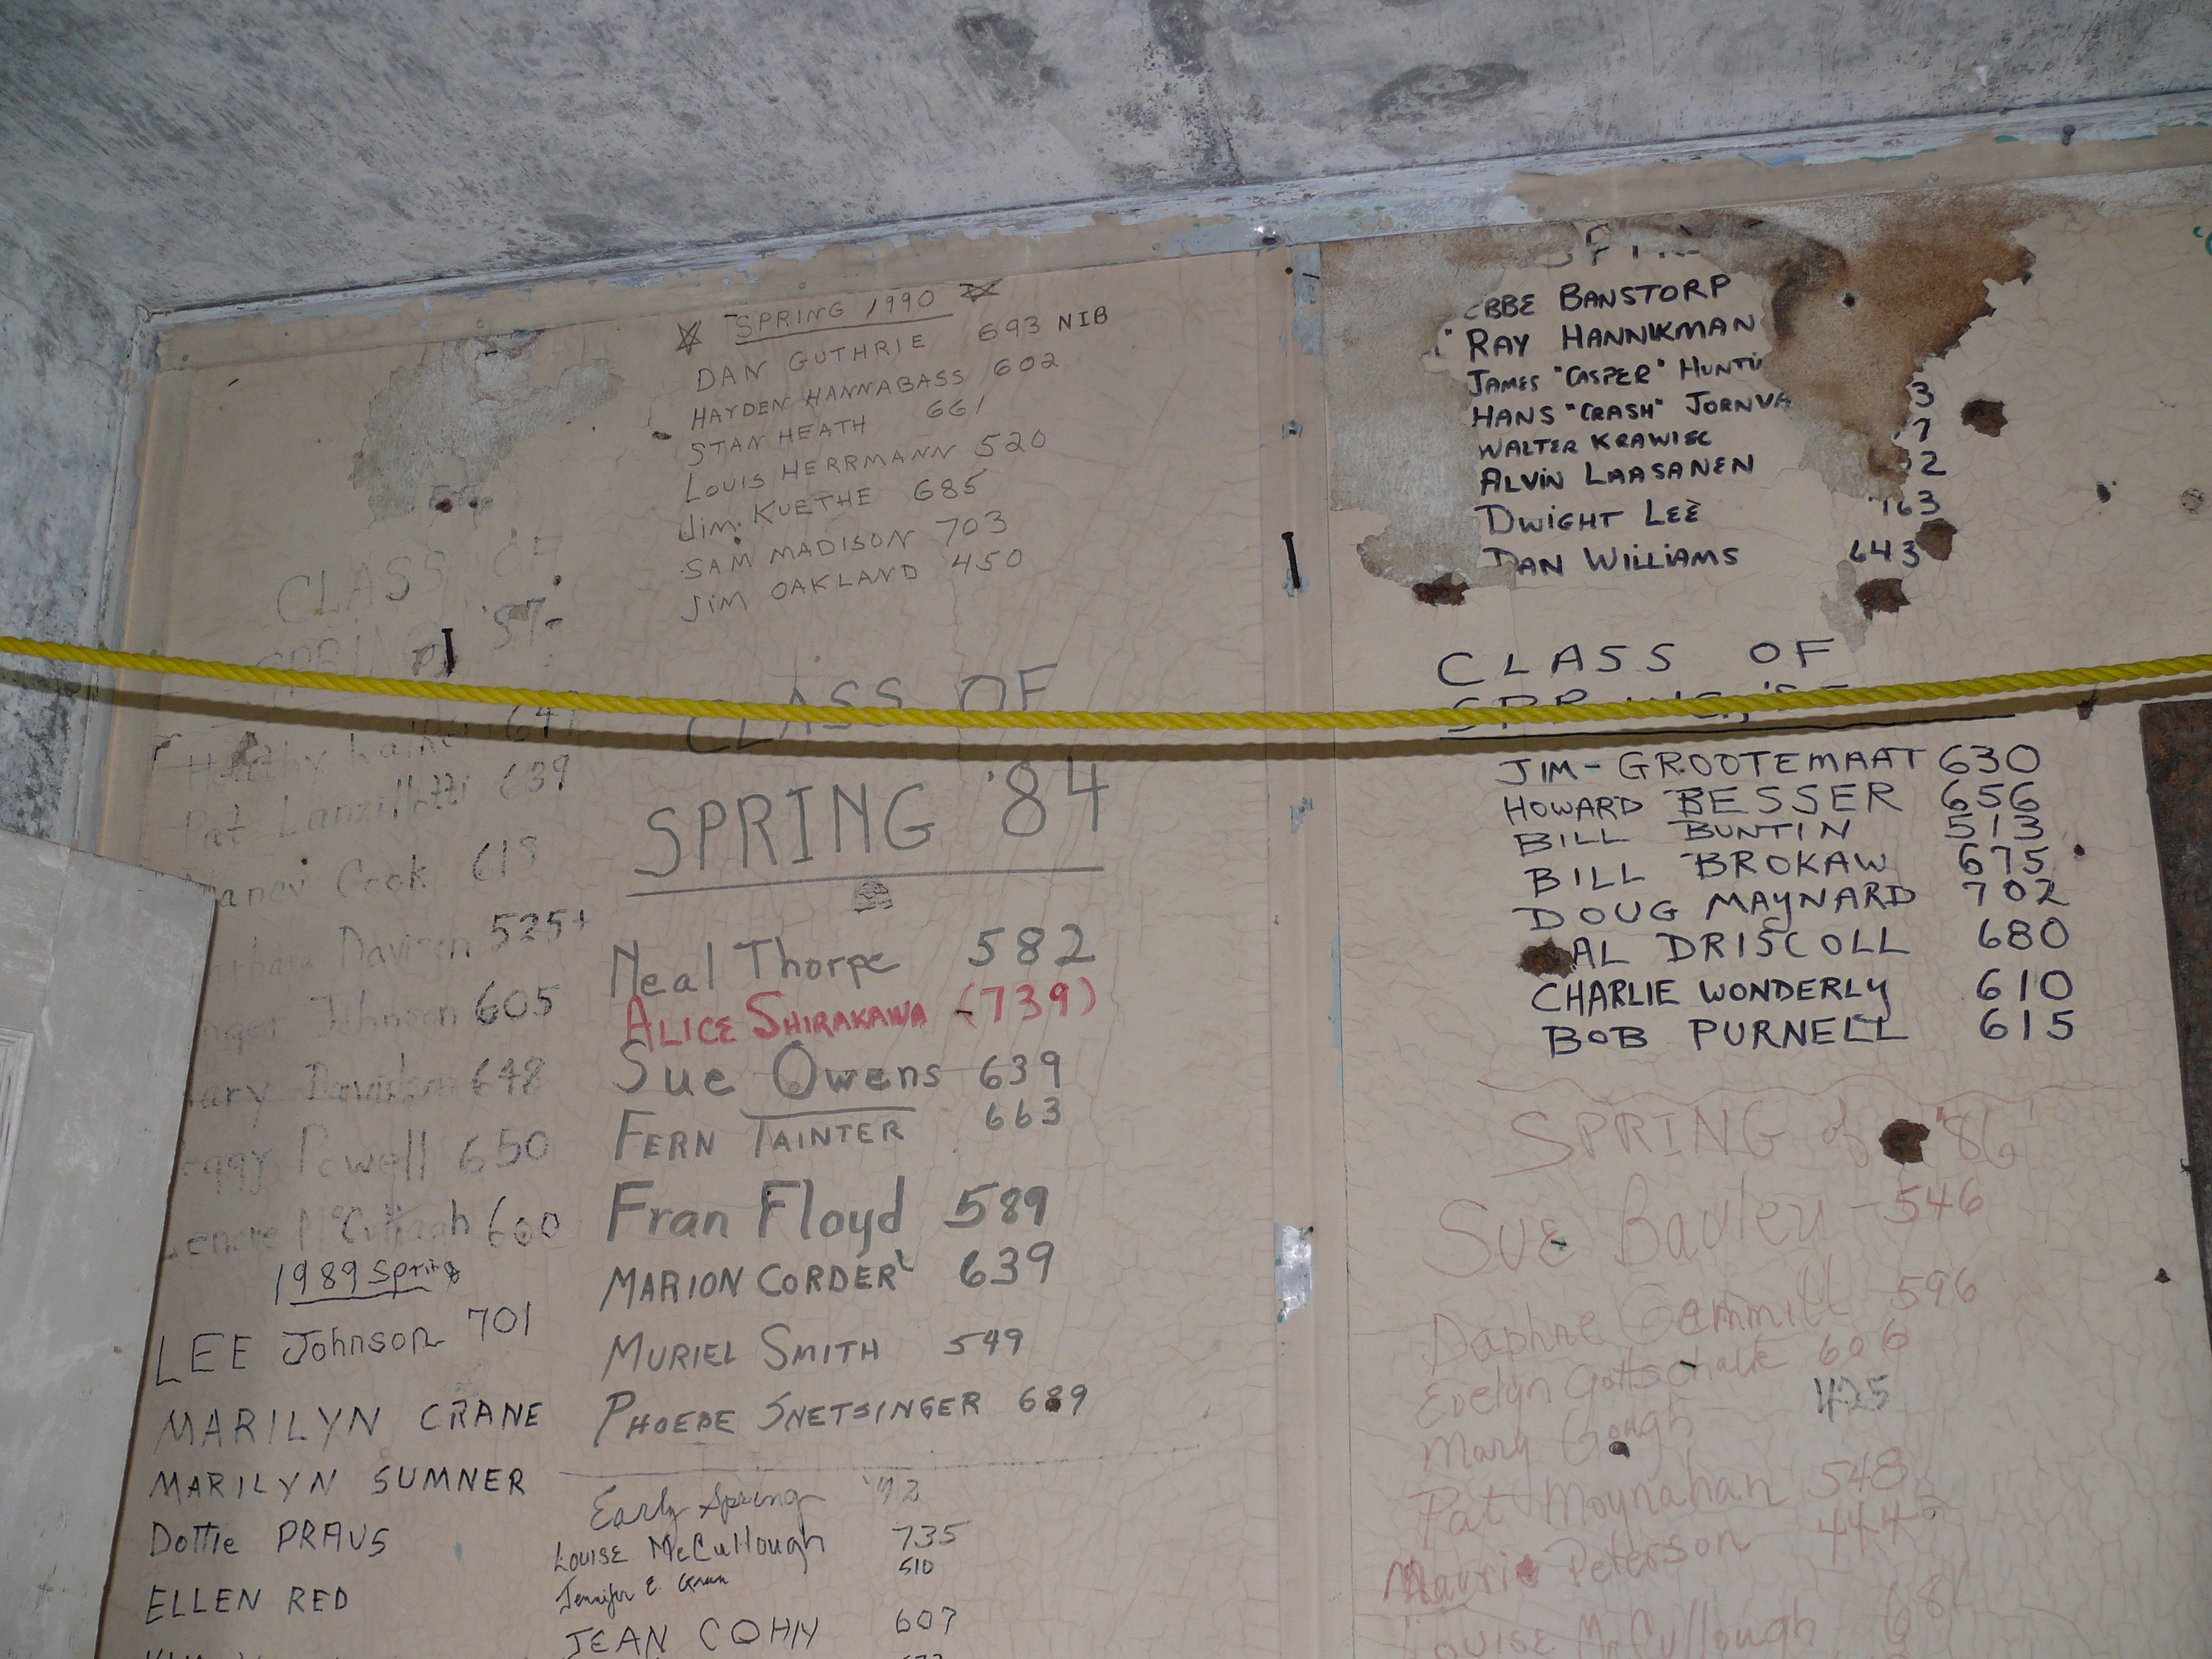 SPRING 1990
DAN GUTHRIE 693 NIB
HAYDEN HANNABASS 602
STAN HEATH 661
LOUIS HERRMANN 520
JIM KUETHE 685
SAM MADISON 703
JIM OAKLAND 450
CLASS OF
SPRING '87
641
Pat Lanzillotti 639
Cook 618
Davison 525+
Johnson 605
Davidson 648
Powell 650
McCullough 600
1989 Spring
LEE Johnson 701
MARILYN CRANE
MARILYN SUMNER
Dottie PRAUS
ELLEN RED
CLASS OF
SPRING '84
Neal Thorpe 582
ALICE SHIRAKAWA - (739)
Sue Owens 639
FERN TAINTER 663
Fran Floyd 589
MARION CORDER 639
MURIEL SMITH 549
PHOEBE SNETSINGER 689
Early Spring '92
LOUISE McCullough 735
Jennifer E. 510
JEAN COHN 607
BANSTORP
RAY HANNIKMAN
JAMES "CASPER"
HANS "CRASH" 3
WALTER KRAWIEC 7
ALVIN LAASANEN 2
DWIGHT LEE 163
DAN WILLIAMS 643
CLASS OF
JIM - GROOTEMAAT 630
HOWARD BESSER 656
BILL BUNTIN 513
BILL BROKAW 675
DOUG MAYNARD 702
AL DRISCOLL 680
CHARLIE WONDERLY 610
BOB PURNELL 615
SPRING of "86'
SUE - 546
Daphne Gammill 596
Evelyn Gottschalk 606
Mary Gough 425
Pat Moynahan 548
Peterson 444
LOUISE McCullough